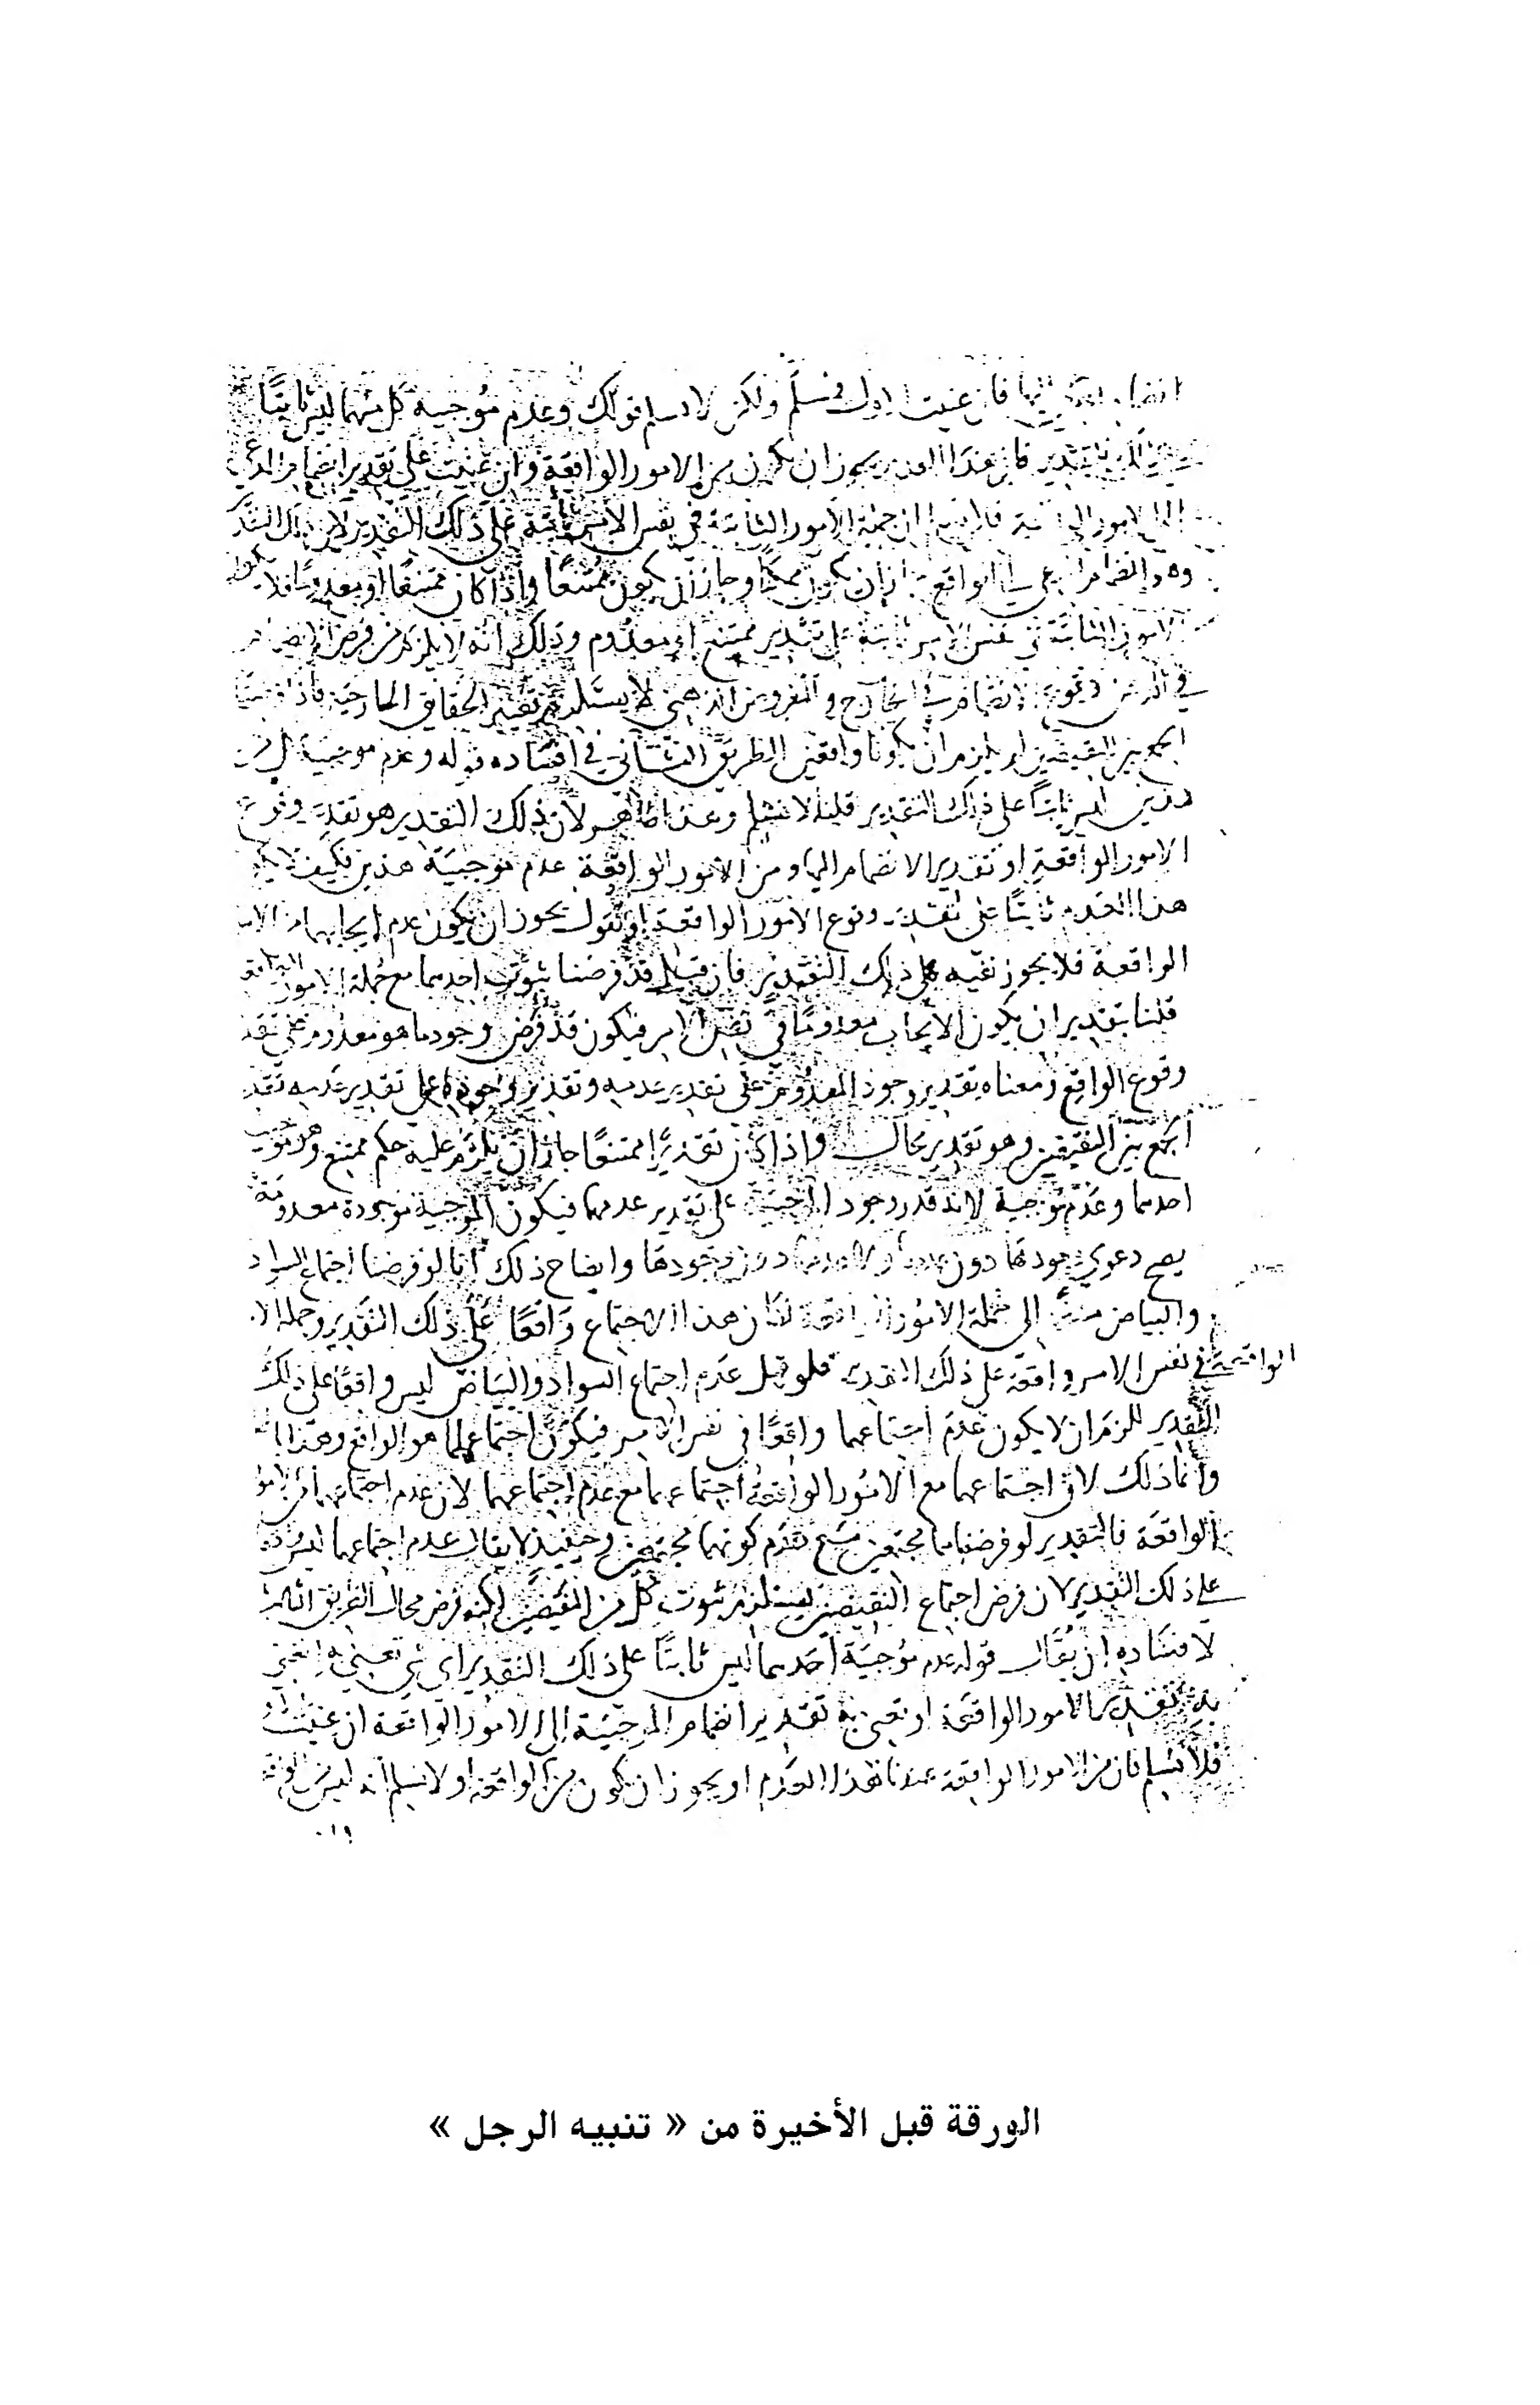 فان عنيت الاول فمسلم ولكن لا نسلم قولك وعدم موجبية كل منهما ليس ثابتا
التقدير فان هذا العدم يجوز ان يكون من الامور الواقعة وان عنيت على تقدير انضمام المدعي
الى الامور فلا نسلم ان جملة الامور الثابتة في نفس الامر ثابتة على ذلك التقدير لان ذلك التقدير
وهو انضمام الواقع جاز ان يكون ممكنا وجاز ان يكون ممتنعا واذا كان ممتنعا او معدوما فلا يكون
الامور الثابتة في نفس الامر ثابتة على تقدير ممتنع او معدوم وذلك انه لا يلزم من فرض
في الذهن وقوع الانضمام في الخارج والمفروض الذهني لا يستلزم تغير الحقائق الخارجية فاذا فرضنا
الجمع بين النقيضين لم يلزم ان يكونا واقعين الطريق الثاني في افساده قوله وعدم موجبية
هذين ليس ثابتا على ذلك التقدير قلنا لا نسلم وهذا ظاهر لان ذلك التقدير هو تقدير وقوع
الامور الواقعة او تقدير الانضمام اليها ومن الامور الواقعة عدم موجبية هذين فكيف لا يكون
هذا العدم ثابتا على تقدير وقوع الامور الواقعة او نقول يجوز ان يكون عدم ايجابهما من الامور
الواقعة فلا يجوز نفيه على ذلك التقدير فان قيل قد فرضنا ثبوت احدهما مع جملة الامور الواقعة
قلنا بتقدير ان يكون الايجاب معدوما في نفس الامر فيكون قد فرض وجود ما هو معدوم على تقدير
وقوع الواقع ومعناه تقدير وجود المعدوم على تقدير عدمه وتقدير وجوده على تقدير عدمه تقدير
الجمع بين النقيضين وهو تقدير محال واذا كان تقديرا ممتنعا جاز ان يلزم عليه حكم ممتنع وهو ثبوت
احدهما وعدم موجبية لانه قدر وجود الموجبية على تقدير عدمها فيكون الموجبية موجودة معدومة
يصح دعوى وجودها دون عدمها ولا عدمها دون وجودها وايضاح ذلك انا لو فرضنا اجتماع السواد
والبياض الى جملة الامور الواقعة لكان هذا الاجتماع واقعا على ذلك التقدير وجملة الامور
الواقعة في نفس الامر واقعة على ذلك التقدير فلو قيل عدم اجتماع السواد والبياض ليس واقعا على ذلك
التقدير للزم ان لا يكون عدم اجتماعهما واقعا في نفس الامر فيكون اجتماعهما هو الواقع وهذا
وانما ذلك لان اجتماعهما مع الامور الواقعة اجتماعهما مع عدم اجتماعهما لان عدم اجتماعهما من الامور
الواقعة فالتقدير لو فرضناهما مجتمعين مع عدم كونهما مجتمعين وحينئذ لا يقال عدم اجتماعهما ليس
على ذلك التقدير لان فرض اجتماع النقيضين يستلزم ثبوت كل من النقيضين لكنه فرض محال الطريق الثالث
لافساده ان يقال قوله عدم موجبية احدهما ليس ثابتا على ذلك التقدير اي شيء تعني به اتعني
به تقدير الامور الواقعة او تعني به تقدير انضمام الموجبية الى الامور الواقعة ان عنيت
فلا نسلم فان من الامور الواقعة عندنا هذا العدم او يجوز ان يكون من الواقعة او لا نسلم انه ليس من الواقعة
الورقة قبل الأخيرة من « تنبيه الرجل »